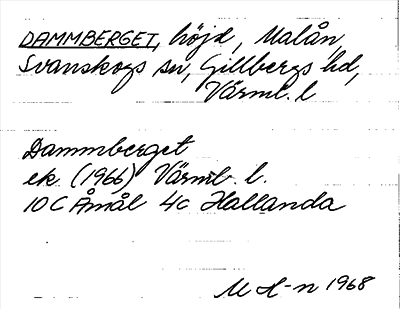 DAMMBERGET, höjd, Malån,
Svanskogs sn, Gillbergs hd,
Värml. l
Dammberget
ek (1966) Värml. l.
10 C Åmål 4c Hallanda
M H-n 1968